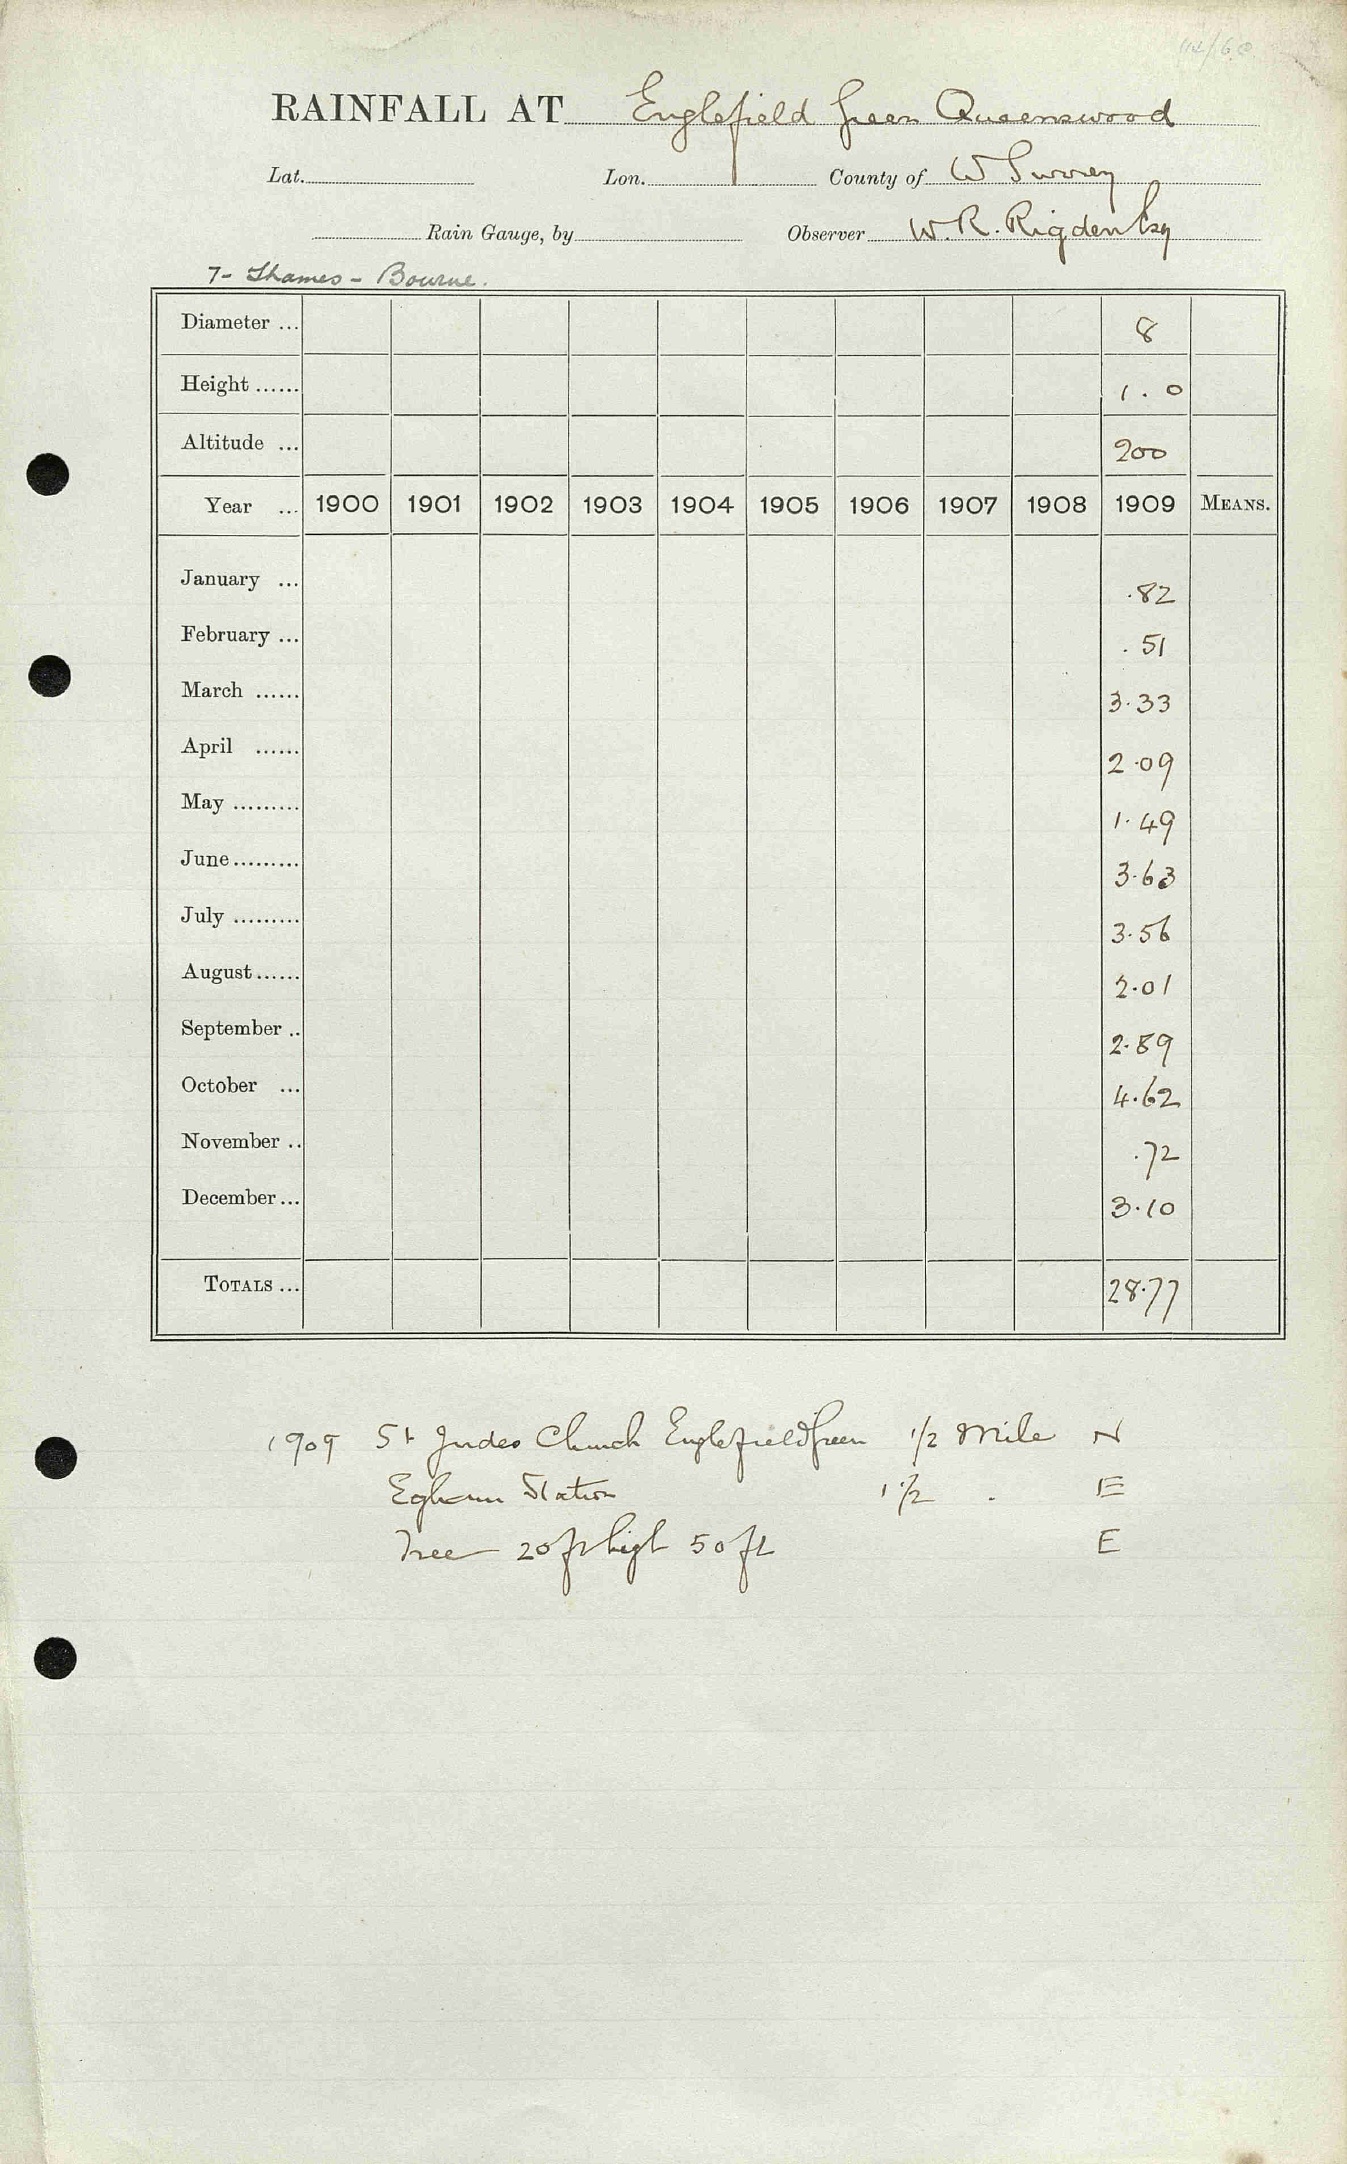 RAINFALL AT Englefield Green Queenswood
Lat. Lon. County of W Surrey
Rain Gauge, by Observer W. R. Rigden Esq
7- Thames - Bourne.
Diameter ... 8
Height ...... 1.0
Altitude ... 200
Year ... 1900 1901 1902 1903 1904 1905 1906 1907 1908 1909 MEANS.
January ... .82
February ... .51
March ...... 3.33
April ...... 2.09
May ......... 1.49
June ......... 3.63
July ......... 3.56
August ...... 2.01
September .. 2.89
October ... 4.62
November .. .72
December ... 3.10
TOTALS ... 28.77
1909 St Judes Church Englefield Green 1/2 Mile N
Egham Station 1 1/2 . E
Tree 20 ft high 50 ft E